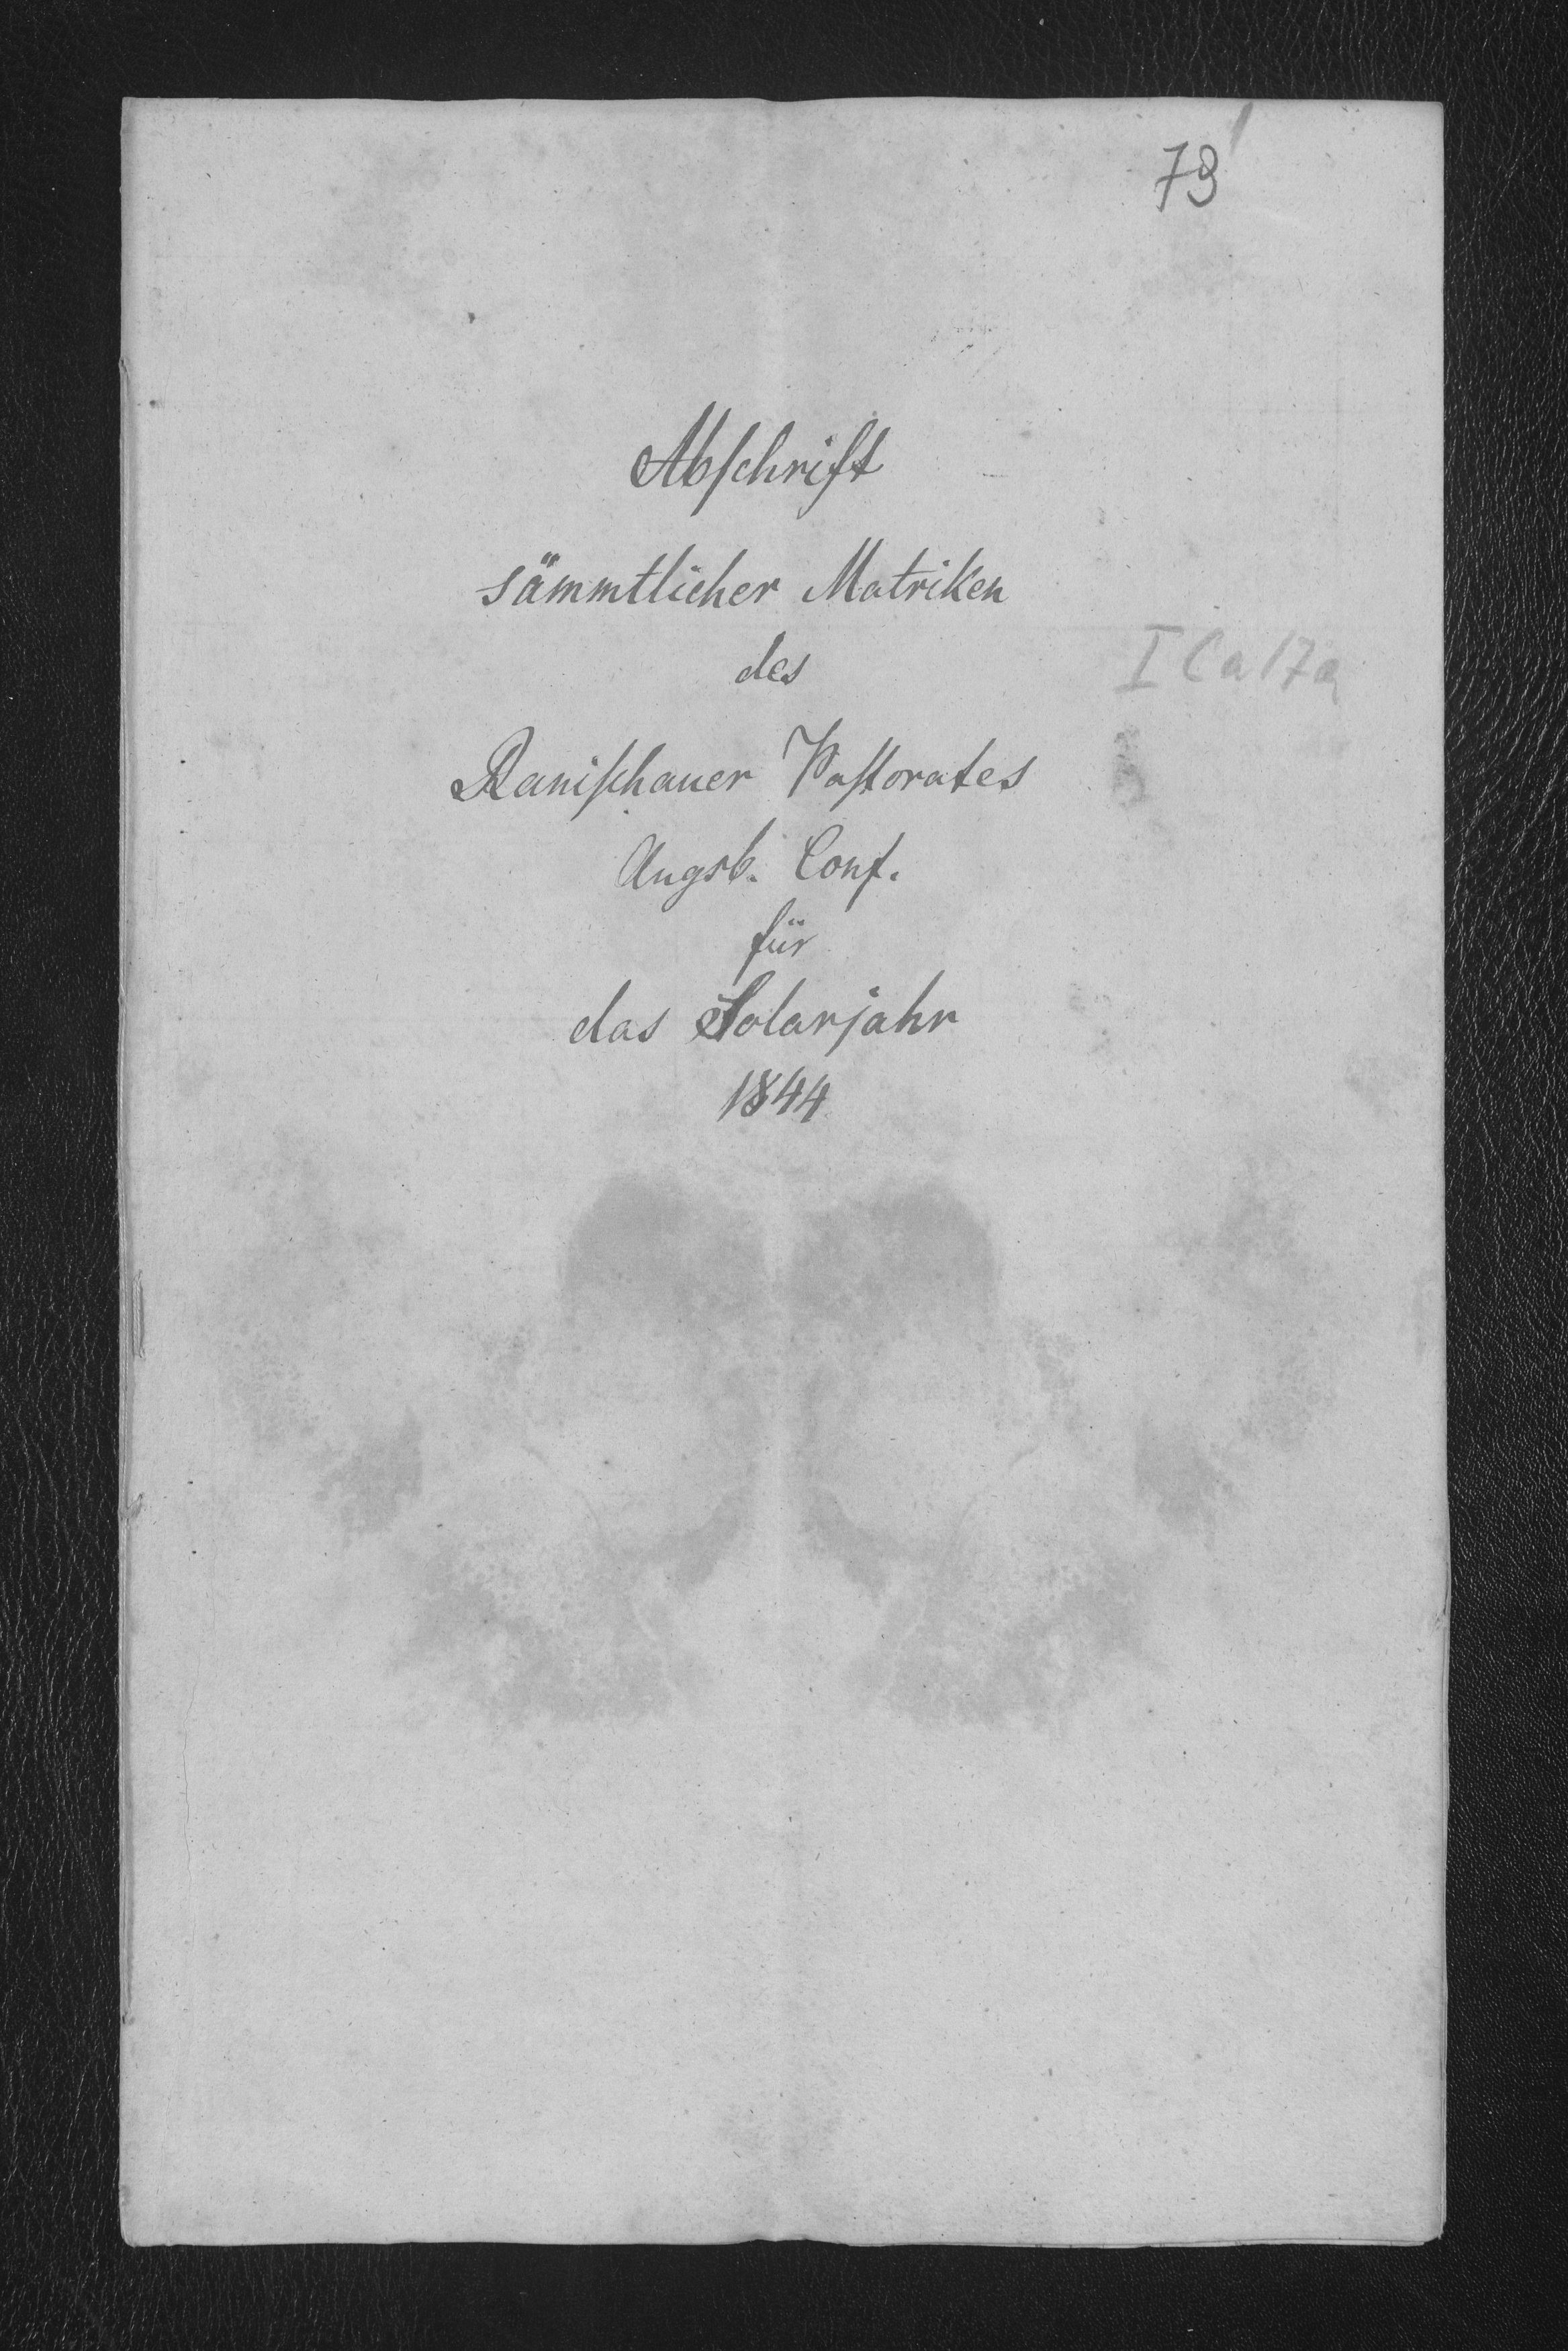 73
Abschrift
sämmtlicher Matriken
des
I Ca 17a
Ranischauer Pastorates
Augsb. Conf.
für
das Solarjahr
1844